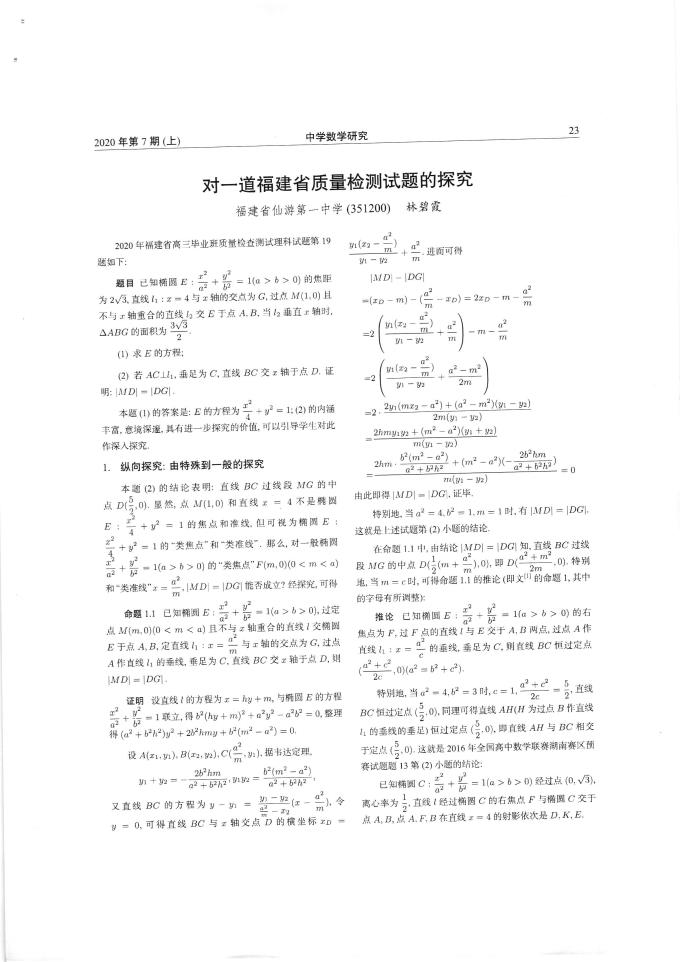 2020 年第 7 期 (上)
中学数学研究
23
对一道福建省质量检测试题的探究
福建省仙游第一中学 (351200) 林碧霞
2020 年福建省高三毕业班质量检查测试理科试题第 19
题如下:
题目 已知椭圆 E : x²/a² + y²/b² = 1(a > b > 0) 的焦距
为 2√3, 直线 l₁ : x = 4 与 x 轴的交点为 G, 过点 M(1,0) 且
不与 x 轴重合的直线 l₂ 交 E 于点 A, B, 当 l₂ 垂直 x 轴时,
△ABG 的面积为 3√3/2.
(1) 求 E 的方程;
(2) 若 AC⊥l₁, 垂足为 C, 直线 BC 交 x 轴于点 D. 证
明: |MD| = |DG|.
本题 (1) 的答案是: E 的方程为 x²/4 + y² = 1; (2) 的内涵
丰富, 意境深邃, 具有进一步探究的价值, 可以引导学生对此
作深入探究.
1. 纵向探究: 由特殊到一般的探究
本题 (2) 的结论表明: 直线 BC 过线段 MG 的中
点 D(5/2, 0). 显然, 点 M(1,0) 和直线 x = 4 不是椭圆
E : x²/4 + y² = 1 的焦点和准线, 但可视为椭圆 E :
x²/4 + y² = 1 的“类焦点”和“类准线”. 那么, 对一般椭圆
x²/a² + y²/b² = 1(a > b > 0) 的“类焦点” F(m,0)(0 < m < a)
和“类准线” x = a²/m, |MD| = |DG| 能否成立? 经探究, 可得
命题 1.1 已知椭圆 E : x²/a² + y²/b² = 1(a > b > 0), 过定
点 M(m,0)(0 < m < a) 且不与 x 轴重合的直线 l 交椭圆
E 于点 A, B, 定直线 l₁ : x = a²/m 与 x 轴的交点为 G, 过点
A 作直线 l₁ 的垂线, 垂足为 C, 直线 BC 交 x 轴于点 D, 则
|MD| = |DG|.
证明 设直线 l 的方程为 x = hy + m, 与椭圆 E 的方程
x²/a² + y²/b² = 1 联立, 得 b²(hy + m)² + a²y² − a²b² = 0, 整理
得 (a² + b²h²)y² + 2b²hmy + b²(m² − a²) = 0.
设 A(x₁, y₁), B(x₂, y₂), C(a²/m, y₁), 据韦达定理,
y₁ + y₂ = −2b²hm/(a² + b²h²), y₁y₂ = b²(m² − a²)/(a² + b²h²),
又直线 BC 的方程为 y − y₁ = (y₁ − y₂)/(a²/m − x₂) (x − a²/m), 令
y = 0, 可得直线 BC 与 x 轴交点 D 的横坐标 x_D =
y₁(x₂ − a²/m)/(y₁ − y₂) + a²/m. 进而可得
|MD| − |DG|
=(x_D − m) − (a²/m − x_D) = 2x_D − m − a²/m
=2(y₁(x₂ − a²/m)/(y₁ − y₂) + a²/m) − m − a²/m
=2(y₁(x₂ − a²/m)/(y₁ − y₂) + (a² − m²)/2m)
=2 · (2y₁(mx₂ − a²) + (a² − m²)(y₁ − y₂))/(2m(y₁ − y₂))
=(2hmy₁y₂ + (m² − a²)(y₁ + y₂))/(m(y₁ − y₂))
=(2hm · b²(m² − a²)/(a² + b²h²) + (m² − a²)(−2b²hm/(a² + b²h²)))/(m(y₁ − y₂)) = 0
由此即得 |MD| = |DG|, 证毕.
特别地, 当 a² = 4, b² = 1, m = 1 时, 有 |MD| = |DG|,
这就是上述试题第 (2) 小题的结论.
在命题 1.1 中, 由结论 |MD| = |DG| 知, 直线 BC 过线
段 MG 的中点 D(1/2(m + a²/m), 0), 即 D((a² + m²)/2m, 0). 特别
地, 当 m = c 时, 可得命题 1.1 的推论 (即文[1] 的命题 1, 其中
的字母有所调整):
推论 已知椭圆 E : x²/a² + y²/b² = 1(a > b > 0) 的右
焦点为 F, 过 F 点的直线 l 与 E 交于 A, B 两点, 过点 A 作
直线 l₁ : x = a²/c 的垂线, 垂足为 C, 则直线 BC 恒过定点
((a² + c²)/2c, 0)(a² = b² + c²).
特别地, 当 a² = 4, b² = 3 时, c = 1, (a² + c²)/2c = 5/2, 直线
BC 恒过定点 (5/2, 0), 同理可得直线 AH(H 为过点 B 作直线
l₁ 的垂线的垂足) 恒过定点 (5/2, 0), 即直线 AH 与 BC 相交
于定点 (5/2, 0). 这就是 2016 年全国高中数学联赛湖南赛区预
赛试题题 13 第 (2) 小题的结论:
已知椭圆 C : x²/a² + y²/b² = 1(a > b > 0) 经过点 (0, √3),
离心率为 1/2, 直线 l 经过椭圆 C 的右焦点 F 与椭圆 C 交于
点 A, B, 点 A, F, B 在直线 x = 4 的射影依次是 D, K, E.